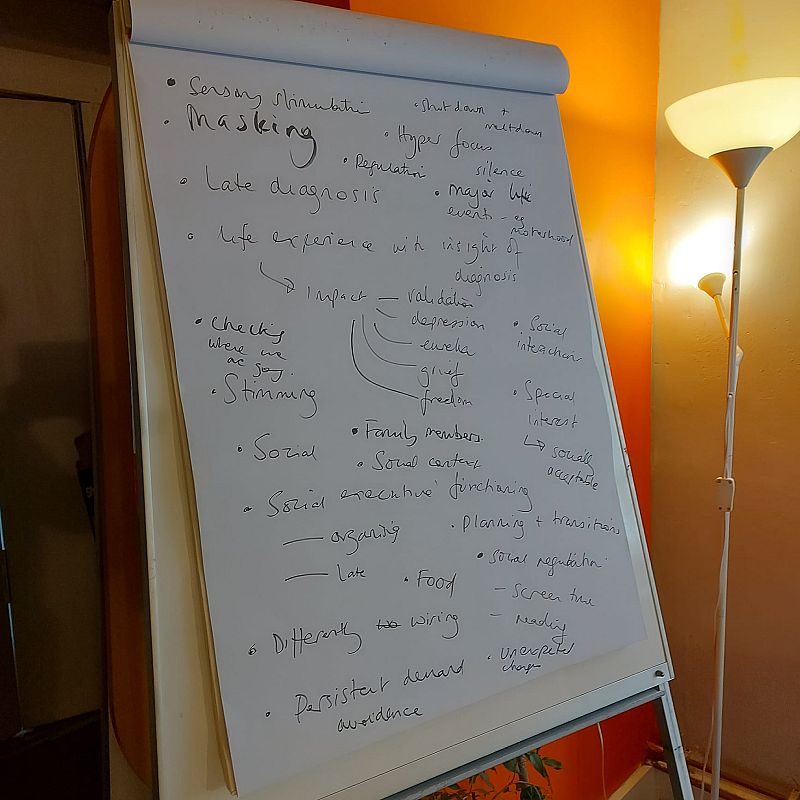 • Sensory stimulati
• Shut down +
meltdown
• Masking
• Hyper focus
• Regulation
silence
• Late diagnosis
• Major life
events – eg
motherhood
• life experience with insight of
diagnosis
Impact – validation
– depression
eureka
grief
freedom
• checking
where we
are
• Social
interaction
• Stimming
• Special
interest
socially
acceptable
• Social
• Family members
• Social context
• Social executive functioning
— organising
— late
• Planning + transitions
• Food
• Social regulation
– screen time
– reading
• Differently wiring
• unexpected
change
• Persistent demand
avoidance